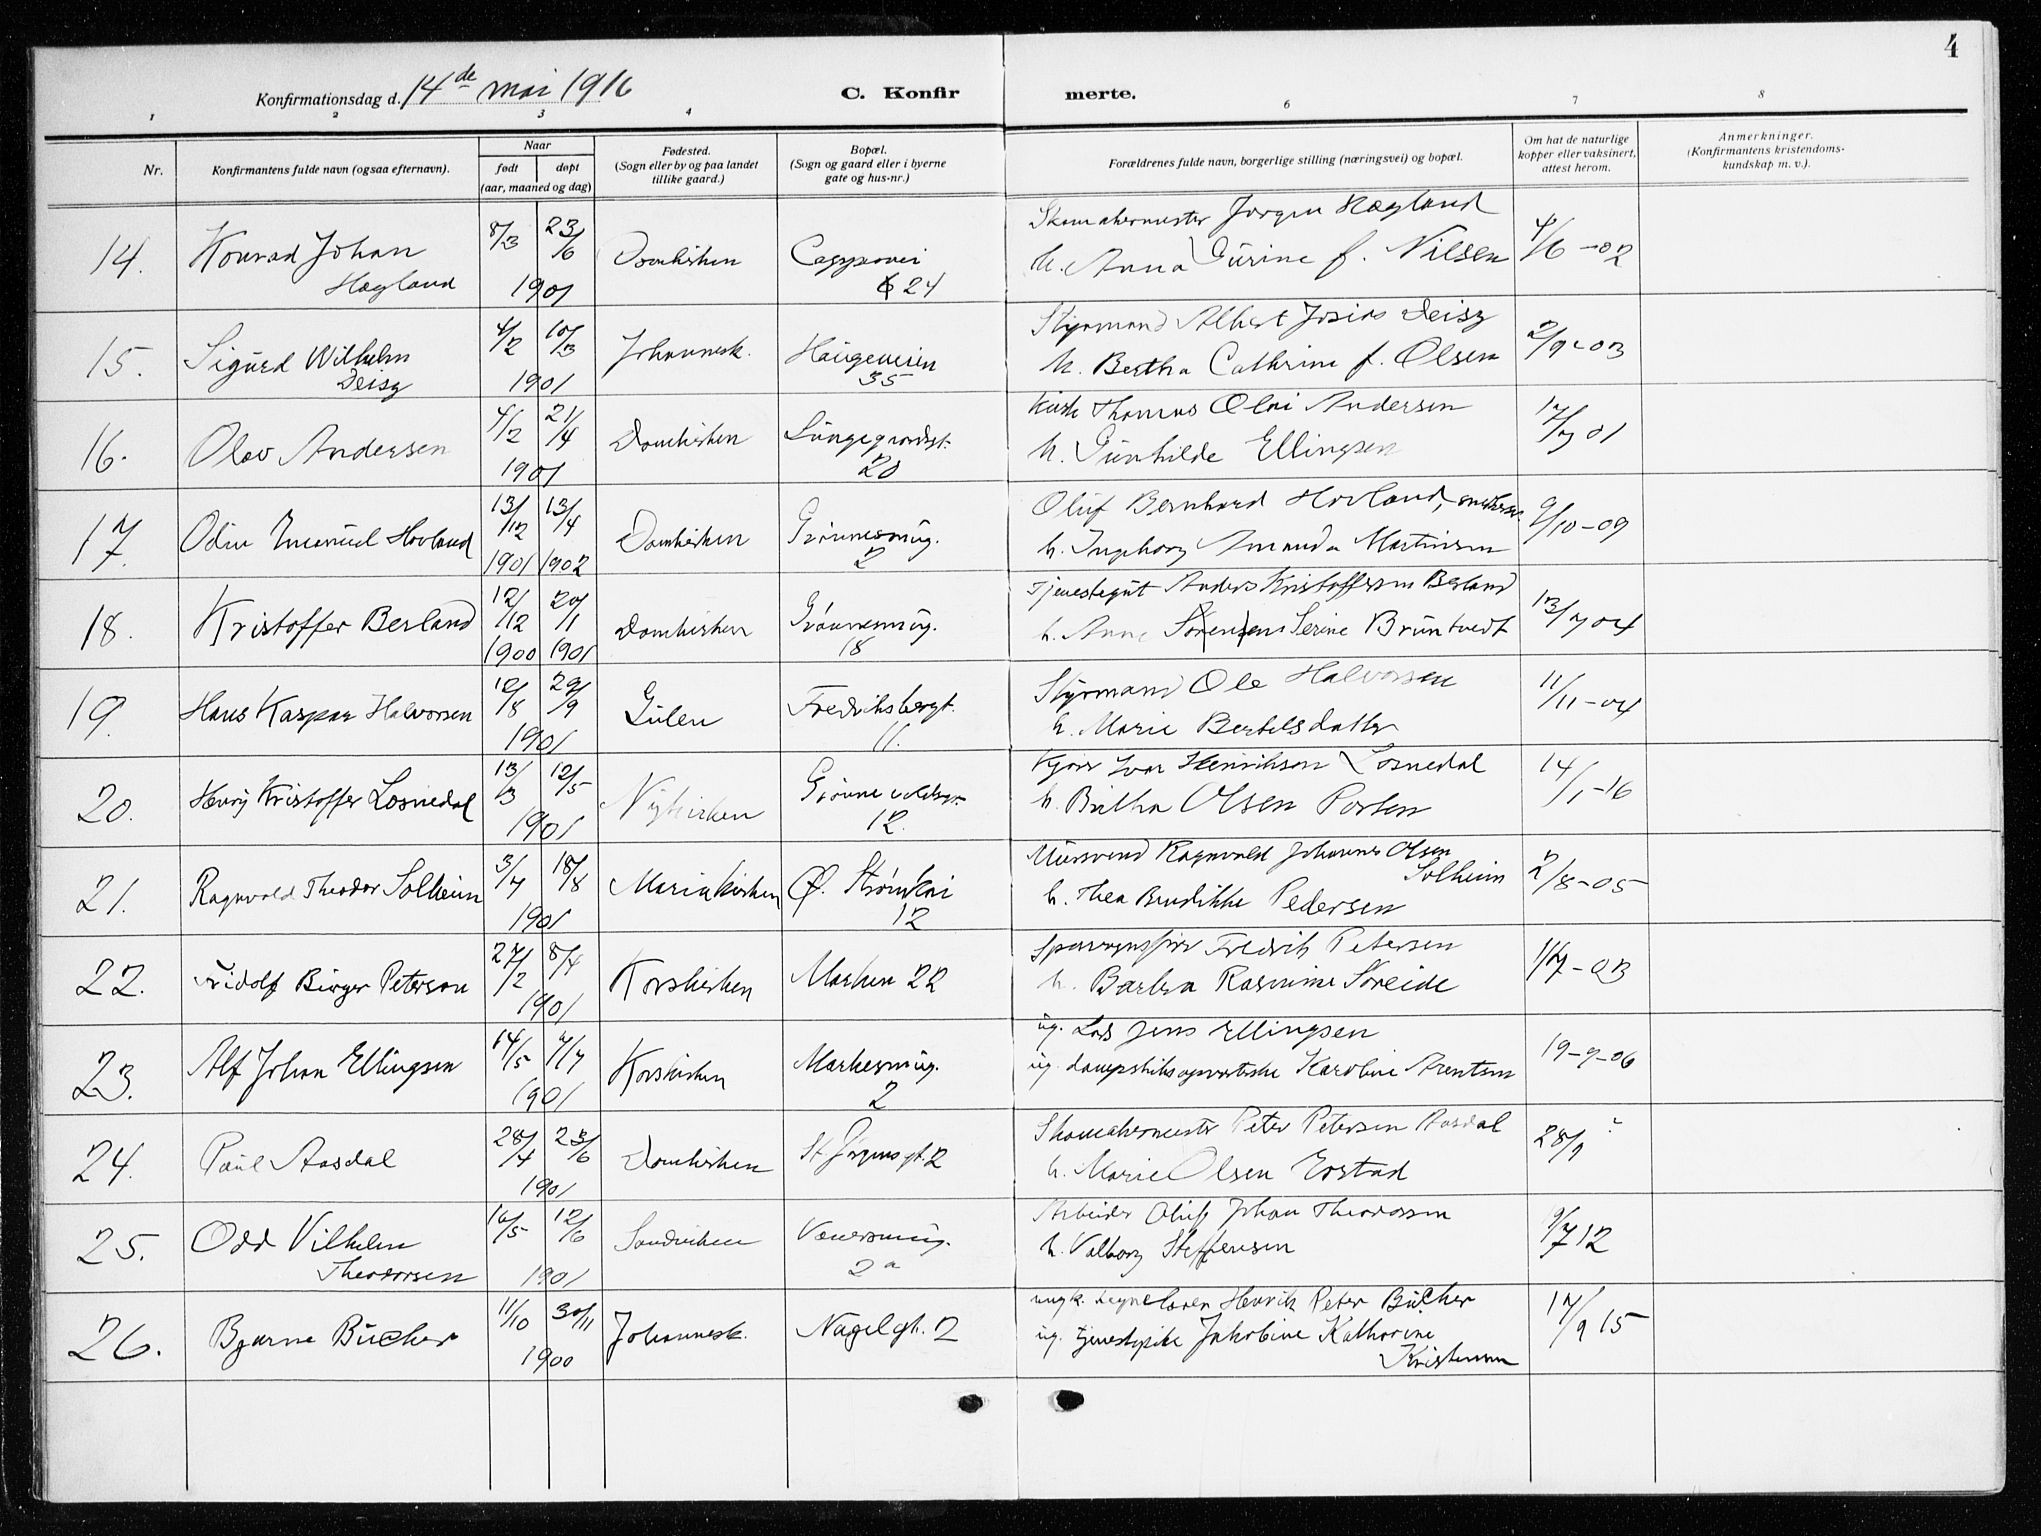 4
Konfirmationsdag d. 14de mai 1916 C. Konfirmerte.
1 2 3 4 6 7 8
Nr. Konfirmantens fulde navn (ogsaa efternavn). Naar født døpt (aar, maaned og dag) Fødested. (Sogn eller by og paa landet tillike gaard.) Bopæl. (Sogn og gaard eller i byerne gate og hus-nr.) Forældrenes fulde navn, borgerlige stilling (næringsvei) og bopæl. Om hat de naturlige kopper eller vaksinert, attest herom. Anmerkninger. (Konfirmantens kristendomskundskap m. v.).
14. Konrad Johan 8/3 23/6 Domkirken Skomakermester Jørgen Hægland 4/6 -02
Hægland 1901 24 h. Anna Gurine f. Nilsen
15. Sigurd Wilhelm 4/2 10/3 Johannesk. Haugeveien Styrmand Albert Josias Deisz 2/9 -03
Deisz 1901 35 h. Bertha Cathrine f. Olsen
16. Olav Andersen 4/2 21/4 Domkirken Lungegaardsgt. Thomas Olai Andersen 17/7 01
1901 20 h. Gunhilde Ellingsen
17. Odin Emanuel Hovland 13/12 13/4 Domkirken Grønnesmug. Oluf Bernhard Hovland, 9/10 -09
1901 1902 2 h. Ingeborg Amanda Martinsen
18. Kristoffer Berland 12/12 20/1 Domkirken Grønnesmug. Tjenestegut Anders Kristoffersen Berland 13/7 04
1900 1901 18 h. Anne Sørensen Serine Bruntvedt
19. Hans Kaspar Halvorsen 12/8 29/9 Gulen Fredriksbergt. Styrmand Ole Halvorsen 11/11 -04
1901 11. h. Marie Bertelsdatter
20. Henry Kristoffer Losnedal 13/3 12/5 Nykirken Ivar Henrikson Losnedal 14/1 -16
1901 12. h. Britha Olsen Porten
21. Ragnvald Theodor Solheim 3/7 18/8 Mariakirken Ø. Strømkai Mursvend Ragnvald Johannes Olsen Solheim 2/8 -05
1901 12 h. Thea Bendikke Pedersen
22. Fridolf Birger Peterson 27/2 8/4 Korskirken Marken 22 Fredrik Petersen 11/7 -03
1901 h. Barbra Rasmine Søreide
23. Alf Johan Ellingsen 14/5 7/7 Korskirken Markesmug. ug. Lods Jens Ellingsen 19-9-06
1901 2 ug. dampskibsopvartske Karoline Arentsen
24. Paul Aasdal 28/4 23/6 Domkirken St Jørgens gt. 2 Skomakermester Peter Petersen Aasdal 28/9 ?
1901 h. Marie Olsen Erstad
25. Odd Vilhelm 16/5 12/6 Sandviken Arbeider Oluf Johan Theodorsen 9/7 12
Theodorsen 1901 2a h. Valborg Steffensen
26. Bjarne Bücher 11/10 30/11 Johannesk. Nagelgt. 2 Henrik Peter Bücher 17/9 15
1900 ug. tjenestepike Jakobine Katharine
Kristensen